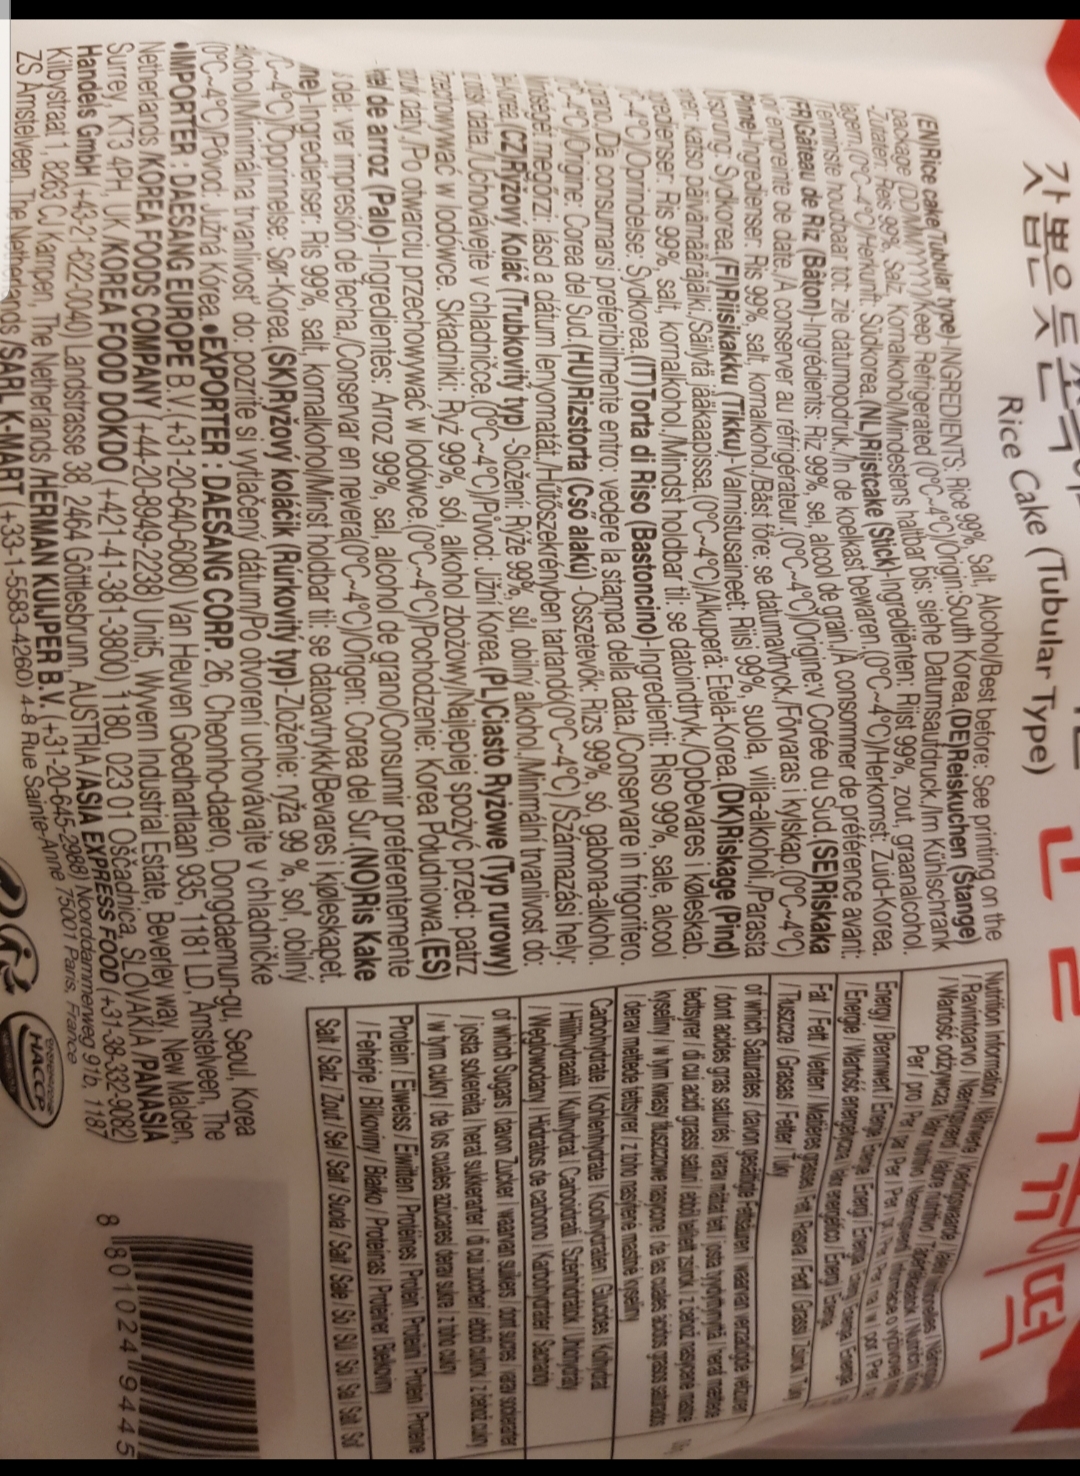 Rice Cake (Tubular Type)
(EN)Rice cake(Tubular type)-INGREDIENTS: Rice 99%, Salt, Alcohol/Best before: See printing on the
package (DD/MM/YYYY)/Keep Refrigerated (0°C~4°C)/Origin:South Korea.(DE)Reiskuchen (Stange)
-Zutaten: Reis 99%, Salz, Kornalkohol/Mindestens haltbar bis: siehe Datumsaufdruck./Im Kühlschrank
lagern.(0°C~4°C)/Herkunft: Südkorea.(NL)Rijstcake (Stick)-Ingrediënten: Rijst 99%, zout, graanalcohol.
Tenminste houdbaar tot: zie datumopdruk./In de koelkast bewaren.(0°C~4°C)/Herkomst: Zuid-Korea.
(FR)Gâteau de Riz (Bâton)-Ingrédients: Riz 99%, sel, alcool de grain./A consommer de préférence avant:
voir empreinte de date./A conserver au réfrigérateur.(0°C~4°C)/Origine:v Corée du Sud(SE)Riskaka
(Pinne)-Ingredienser: Ris 99%, salt, kornalkohol./Bäst före: se datumavtryck./Förvaras i kylskap.(0°C~4°C)
/Ursprung: Sydkorea.(FI)Riisikakku (Tikku)-Valmistusaineet: Riisi 99%, suola, vilja-alkoholi./Parasta
ennen: katso päivämääräjälki./Säilytä jääkaapissa.(0°C~4°C)/Alkuperä: Etelä-Korea.(DK)Riskage (Pind)
-Ingredienser: Ris 99%, salt, kornalkohol./Mindst holdbar til: se datoindtryk./Opbevares i køleskab.
(0°C~4°C)/Oprindelse: Sydkorea.(IT)Torta di Riso (Bastoncino)-Ingredienti: Riso 99%, sale, alcool
grano./Da consumarsi preferibilmente entro: vedere la stampa della data./Conservare in frigorifero.
(0°C~4°C)/Origine: Corea del Sud.(HU)Rizstorta (Cső alakú) -Összetevők: Rizs 99%, só, gabona-alkohol.
Minőségét megőrzi: lásd a dátum lenyomatát./Hűtőszekrényben tartandó(0°C~4°C)/Származási hely:
Korea.(CZ)Rýžový Koláč (Trubkovitý typ) -Složení: Rýže 99%, sůl, obilný alkohol./Minimální trvanlivost do:
tisk data./Uchovávejte v chladničce.(0°C~4°C)/Původ: Jižní Korea.(PL)Ciasto Ryżowe (Typ rurowy)
Przechowywać w lodówce. Składniki: Ryż 99%, sól, alkohol zbożowy/Najlepiej spożyć przed: patrz
druk daty./Po otwarciu przechowywać w lodówce.(0°C~4°C)/Pochodzenie: Korea Południowa.(ES)
Pastel de arroz (Palo)-Ingredientes: Arroz 99%, sal, alcohol de grano/Consumir preferentemente
del: ver impresión de fecha./Conservar en nevera(0°C~4°C)/Origen: Corea del Sur.(NO)Ris Kake
-Ingredienser: Ris 99%, salt, kornalkohol/Minst holdbar til: se datoavtrykk/Bevares i kjøleskapet.
(0°C~4°C)/Opprinnelse: Sør-Korea.(SK)Ryžový koláčik (Rúrkovitý typ)-Zloženie: ryža 99 %, soľ, obilný
alkohol/Minimálna trvanlivosť do: pozrite si vytlačený dátum/Po otvorení uchovávajte v chladničke
(0°C~4°C)/Pôvod: Južná Kórea.•EXPORTER : DAESANG CORP. 26, Cheonho-daero, Dongdaemun-gu, Seoul, Korea
•IMPORTER : DAESANG EUROPE B.V.(+31-20-640-6080) Van Heuven Goedhartlaan 935, 1181 LD, Amstelveen, The
Netherlands /KOREA FOODS COMPANY (+44-20-8949-2238) Unit5, Wyvern Industrial Estate, Beverley way, New Malden,
Surrey, KT3 4PH, UK /KOREA FOOD DOKDO (+421-41-381-3800) 1180, 023 01 Oščadnica, SLOVAKIA /PANASIA
Handels GmbH (+43-21-622-0040) Landstrasse 38, 2464 Göttlesbrunn, AUSTRIA /ASIA EXPRESS FOOD (+31-38-332-9082)
Kilbystraat 1, 8263 CJ Kampen, The Netherlands /HERMAN KUIJPER B.V. (+31-20-645-2988) Noorddammerweg 91b, 1187
ZS Amstelveen, The Netherlands /SARL K-MART (+33-1-5583-4260) 4-8 Rue Sainte-Anne 75001 Paris, France
Nutrition Information / Nährwerte / Voedingswaarde
/ Ravintoarvo / Næringsværdi / Valore nutritivo
/ Wartość odżywcza / Valor nutritivo
Per / pro / Per / par / Per / Per
Energy / Brennwert / Energie
/ Energie / Wartość energetyczna / Valor energético / Energi / Energia
Fat / Fett / Vetten / Matières grasses / Fett / Rasva / Fedt / Grassi / Zsírok / Tuky
/ Tłuszcze / Grasas / Fetter / Tuky
of which Saturates / davon gesättigte Fettsäuren / waarvan verzadigde vetzuren
/ dont acides gras saturés / varav mättat fett / josta tyydyttynyttä / heraf mættede
fedtsyrer / di cui acidi grassi saturi / ebből telített zsírok / z čehož nasycené mastné
kyseliny / w tym kwasy tłuszczowe nasycone / de las cuales ácidos grasos saturados
/ derav mettede fettsyrer / z toho nasýtené mastné kyseliny
Carbohydrate / Kohlenhydrate / Koolhydraten / Glucides / Kolhydrat
/ Hiilihydraatit / Kulhydrat / Carboidrati / Szénhidrátok / Uhlohydráty
/ Węglowodany / Hidratos de carbono / Karbohydrater / Sacharidy
of which Sugars / davon Zucker / waarvan suikers / dont sucres / varav sockerarter
/ josta sokereita / herat sukkerarter / di cui zuccheri / ebből cukrok / z čehož cukry
/ w tym cukry / de los cuales azúcares / derav sukre / z toho cukry
Protein / Eiweiss / Eiwitten / Protéines / Protein / Protein / Protein / Proteine
/ Fehérje / Bílkoviny / Białko / Proteínas / Proteiner / Bielkoviny
Salt / Salz / Zout / Sel / Salt / Suola / Salt / Sale / Só / Sůl / Sól / Sal / Salt / Soľ
HACCP
8 801024 19445